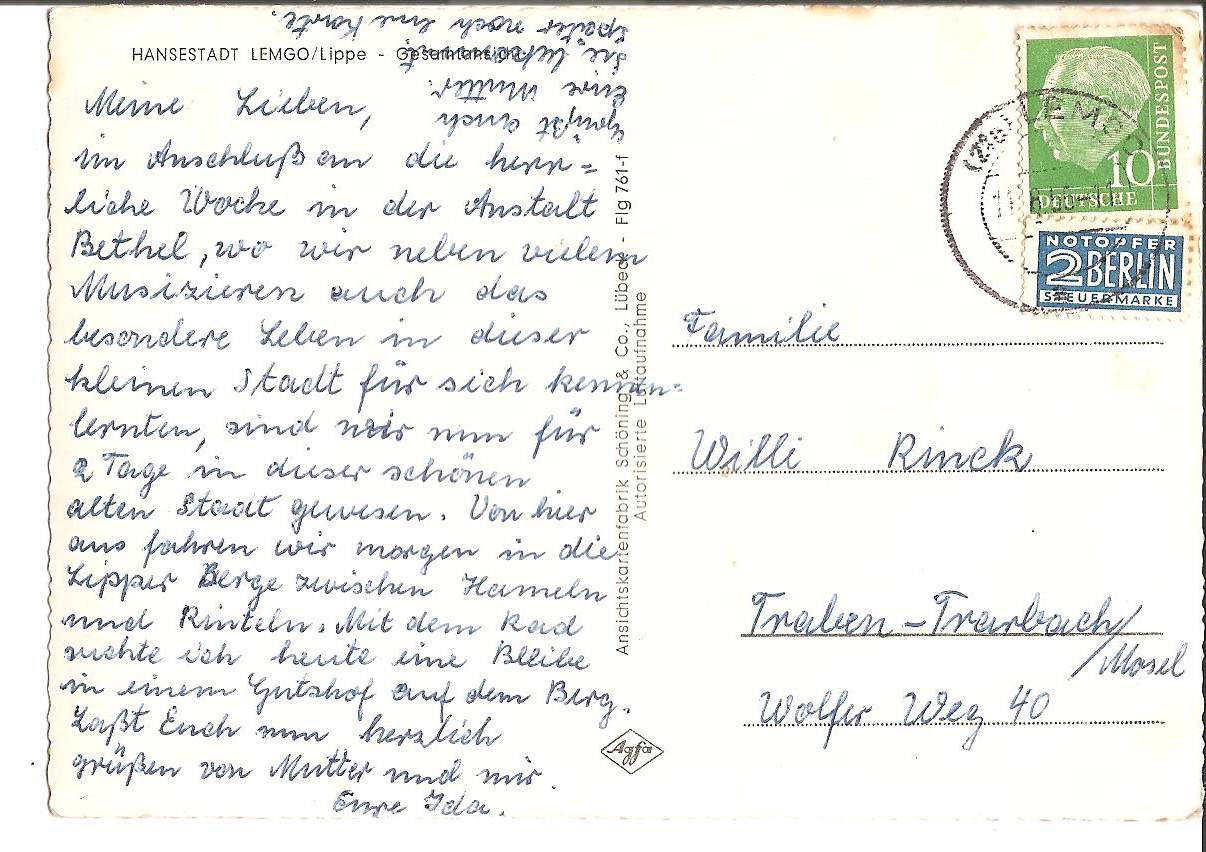 HANSESTADT LEMGO/Lippe - Gesamtansicht
Meine Lieben,
im Anschluß an die herr=
liche Woche in der Anstalt
Bethel, wo wir neben vielem
Musizieren auch das
besondere Leben in dieser
kleinen Stadt für sich kennen=
lernten, sind wir nun für
2 Tage in dieser schönen
alten Stadt gewesen. Von hier
aus fahren wir morgen in die
Lipper Berge zwischen Hameln
und Rinteln. Mit dem Rad
suchte ich heute eine Bleibe
in einem Gutshof auf dem Berg.
Laßt Euch nun herzlich
grüßen von Mutter und mir.
Eure Ida.
Grüßt Euch
Eure Mutter.
später noch eine Karte.
Ansichtskartenfabrik Schöning & Co., Lübeck - Flg 761-f
Autorisierte Luftaufnahme
Agfa
LEMGO
10
DEUTSCHE
BUNDESPOST
NOTOPFER
2 BERLIN
STEUERMARKE
Familie
Willi Rinck
Traben-Trarbach/
/Mosel
Wolfer Weg 40